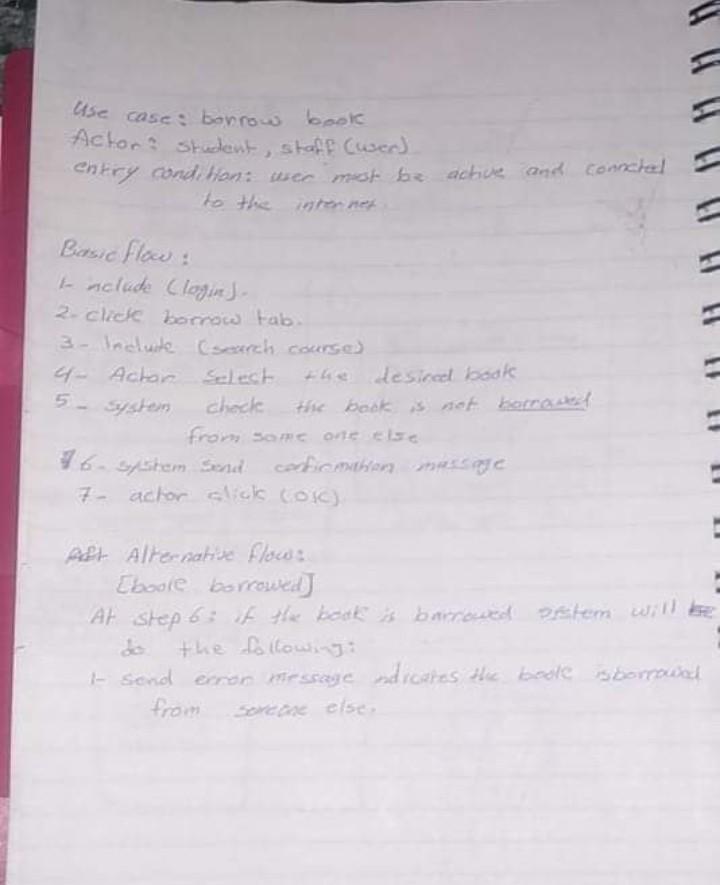 Use case: borrow book
Actor: student, staff (user)
entry condition: user must be active and conncted
to the internet.
Basic flow:
1- include (login).
2- click borrow tab.
3- Include (search course)
4- Actor Select the desired book
5- system check the book is not borrowed
from some one else
6- system send confirmation massage
7- actor click (OK)
Alternative flow:
[book borrowed]
At step 6: if the book is barrowed system will
do the following:
1- send error message ndicates the book is borrowed
from someone else.